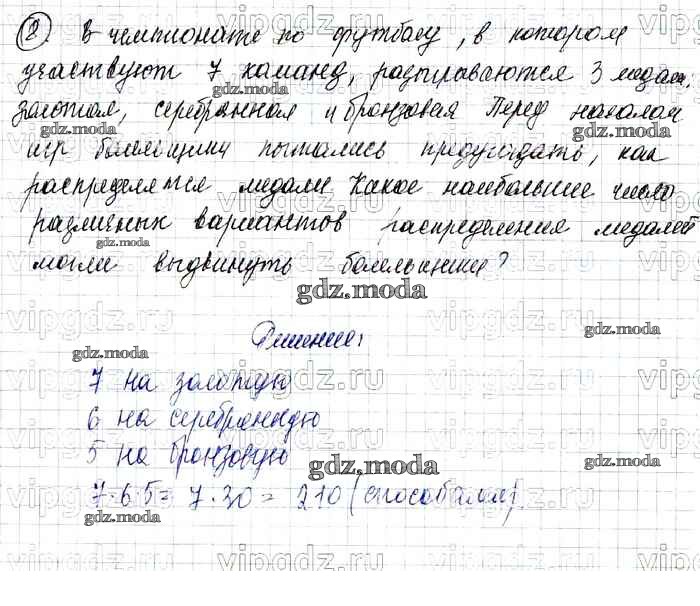 2. В чемпионате по футболу, в котором
участвуют 7 команд, разыгрываются 3 медали.
золотая, серебрянная и бронзовая Перед началом
игр болельщики пытались предугадать, как
распределятся медали Какое наибольшее число
различных вариантов распределение медалей
могли выдвинуть болельщики?
Решение:
7 на золотую
6 на серебрянную
5 на бронзовую
7·6·5= 7·30= 210 (способами)
gdz.moda
vipgdz.ru